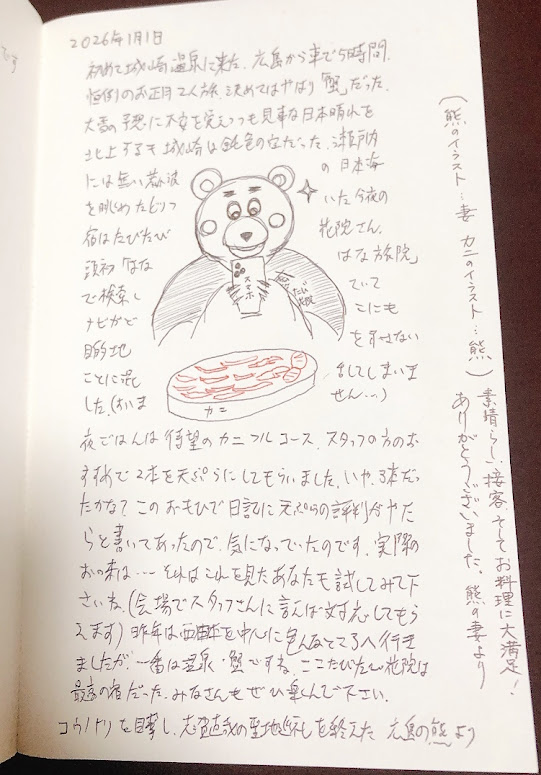 です
2026年1月1日
初めて城崎温泉に来た。広島から車で5時間。
恒例のお正月2人旅、決めてはやはり「蟹」だった。
大雪の予想に不安を覚えつつも見事な日本晴れを
北上するも城崎は鈍色の空だった。瀬戸内
には無い荒波の日本海
を眺めたどりついた今夜の
宿はたびたび花院さん。
頭初「はなはな旅院」
で検索していて
ナビがどこにも
目的地を示せない
ことに
した。
スマホ
カニ
夜ごはんは待望のカニフルコース。スタッフの方のお
すすめで2本を天ぷらにしてもらいました。いや、3本だっ
たかな?このおもひで日記に天ぷらの評判がやた
らと書いてあったので、気になっていたのです。実際の
お味は…それはこれを見たあなたも試してみて下
さいね。(会場でスタッフさんに言えば対応してもら
えます)昨年は西日本を中心に色んなところへ行き
ましたが、一番は温泉・蟹ですね。ここたびたび花院は
最高の宿だった。みなさんもぜひ楽しんで下さい。
コウノトリを目撃し、志賀直哉の聖地巡礼を終えた 広島の熊より
(熊のイラスト…妻 カニのイラスト…熊)
素晴らしい接客、そしてお料理に大満足!
ありがとうございました。熊の妻より